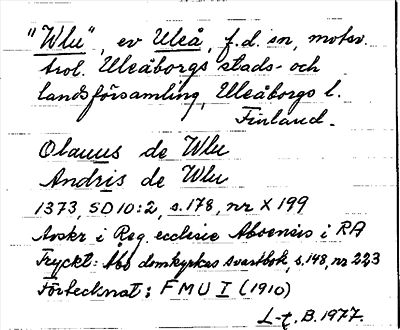 "Wlu", ev Uleå, f.d. sn, motsv.
trol. Uleåborgs stads- och
landsförsamling, Uleåborgs l.
Finland.
Olauus de Wlu
Andris de Wlu
1373, SD 10:2, s.178, nr X 199
Avskr i Reg. ecclesie Aboensis i RA
Tryckt: Åbo domkyrkas svartbok, s.148, nr 223
Förtecknat: FMU I (1910)
L-t, B. 1977.